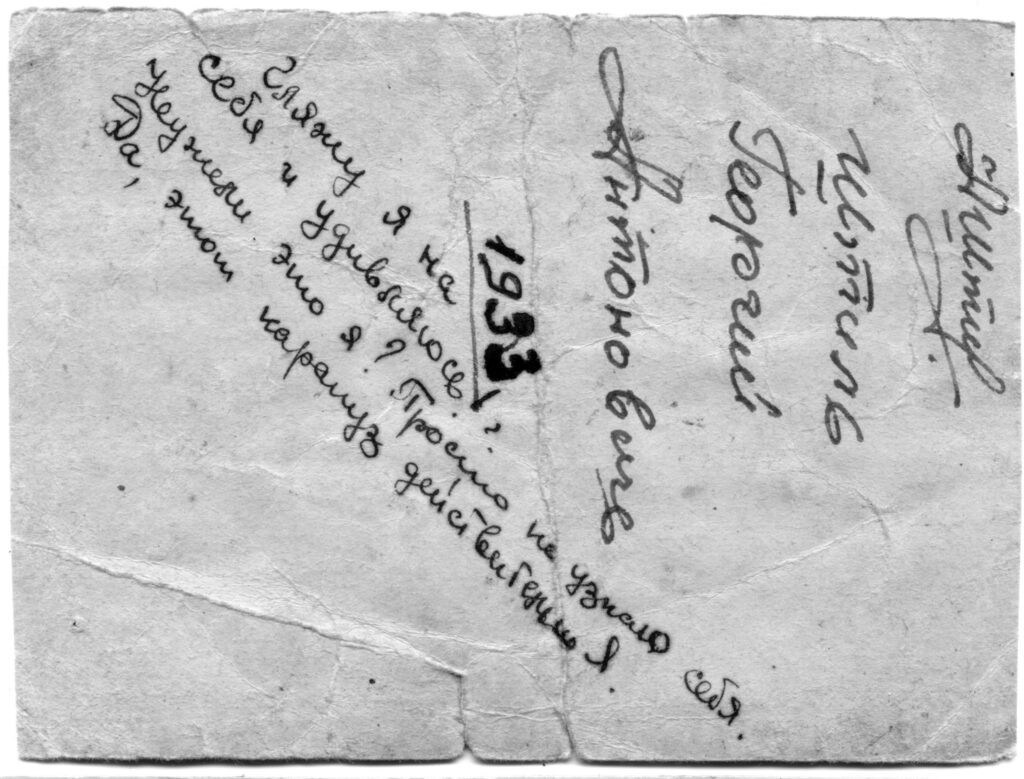 Георгий
Антонович
1933
Гляжу я на
себя и удивляюсь
Неужели это я? Просто не узнаю себя.
Да, этот карапуз действительно я.